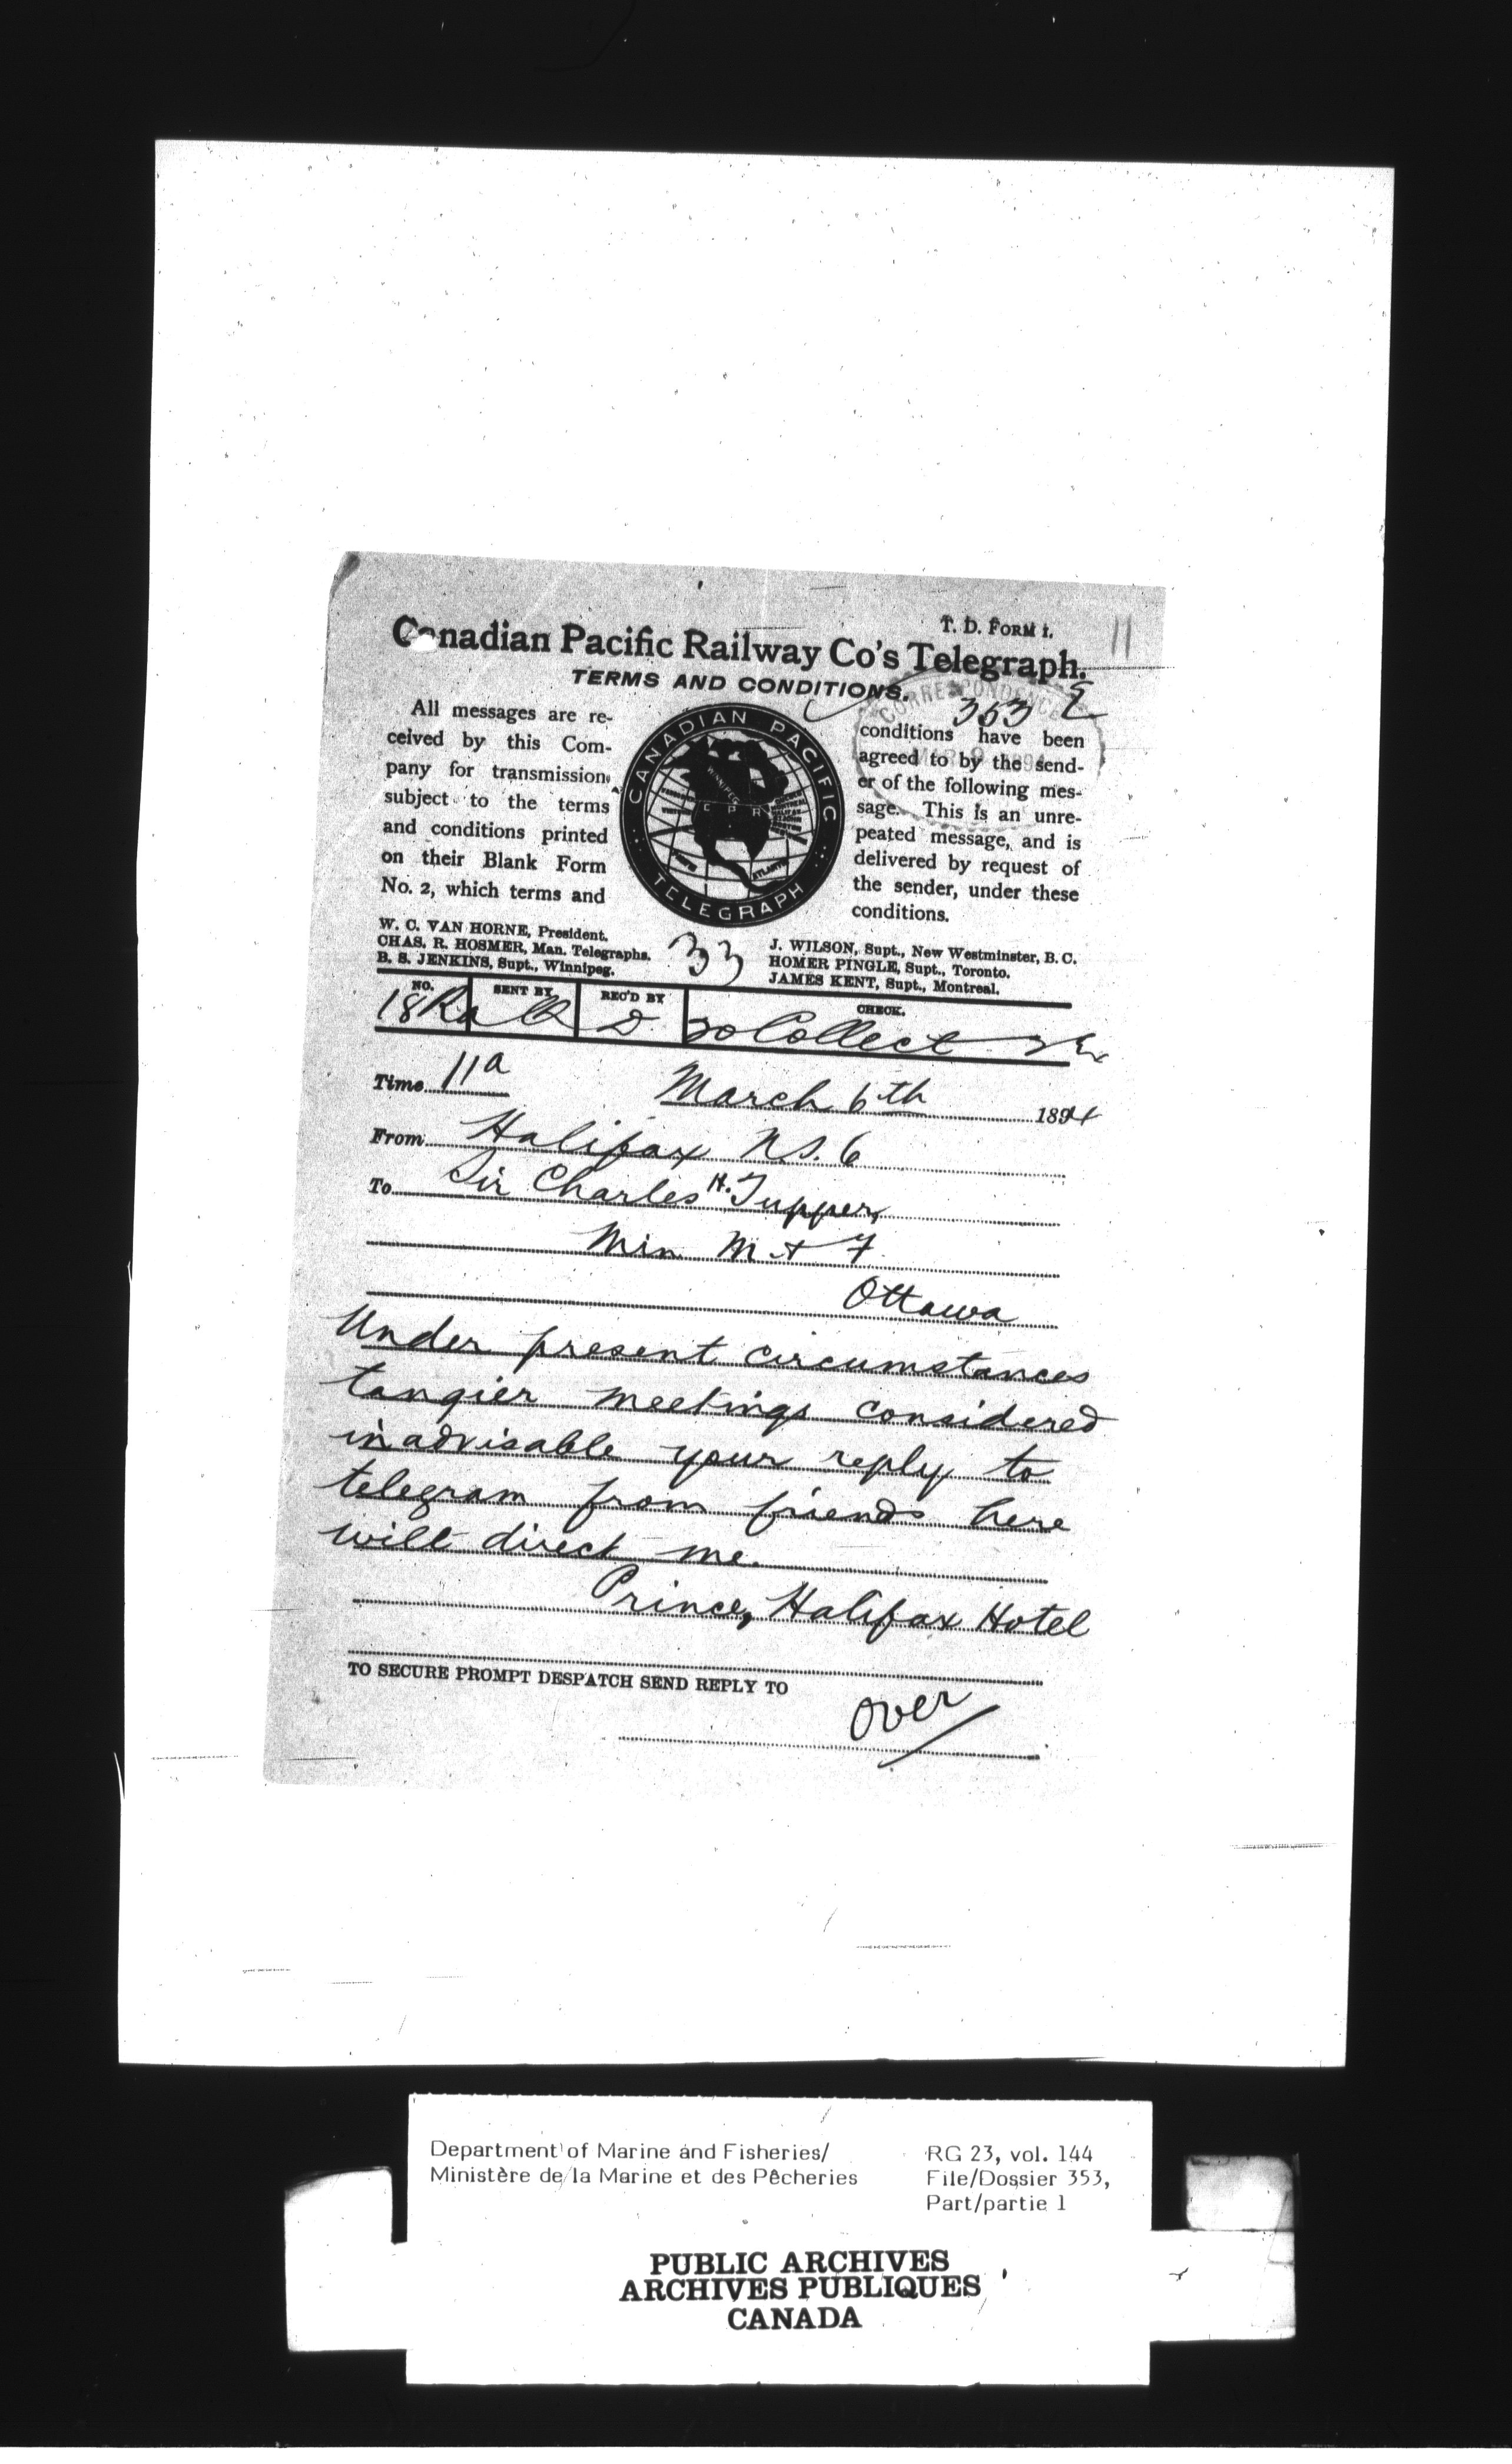 T. D. FORM 1.
11
Canadian Pacific Railway Co's Telegraph.
TERMS AND CONDITIONS.
CORRESPONDENCE
353
All messages are re-
ceived by this Com-
pany for transmission
subject to the terms
and conditions printed
on their Blank Form
No. 2, which terms and
CANADIAN PACIFIC
WINNIPEG
C P R
ATLANTIC
TELEGRAPH
conditions have been
agreed to by the send-
er of the following mes-
sage. This is an unre-
peated message, and is
delivered by request of
the sender, under these
conditions.
W. C. VAN HORNE, President.
CHAS. R. HOSMER, Man. Telegraphs.
B. S. JENKINS, Supt., Winnipeg.
33
J. WILSON, Supt., New Westminster, B. C.
HOMER PINGLE, Supt., Toronto.
JAMES KENT, Supt., Montreal.
NO. SENT BY REC'D BY CHECK.
18 D 20 Collect
Time 11a March 6th 1894
From Halifax N.S. 6
To Sir Charles H. Tupper,
Min M & F
Ottawa
Under present circumstances
tangier meetings considered
inadvisable your reply to
telegram from friends here
will direct me.
Prince, Halifax Hotel
TO SECURE PROMPT DESPATCH SEND REPLY TO
over
Department of Marine and Fisheries/
Ministère de la Marine et des Pêcheries
RG 23, vol. 144
File/Dossier 353,
Part/partie 1
PUBLIC ARCHIVES
ARCHIVES PUBLIQUES
CANADA